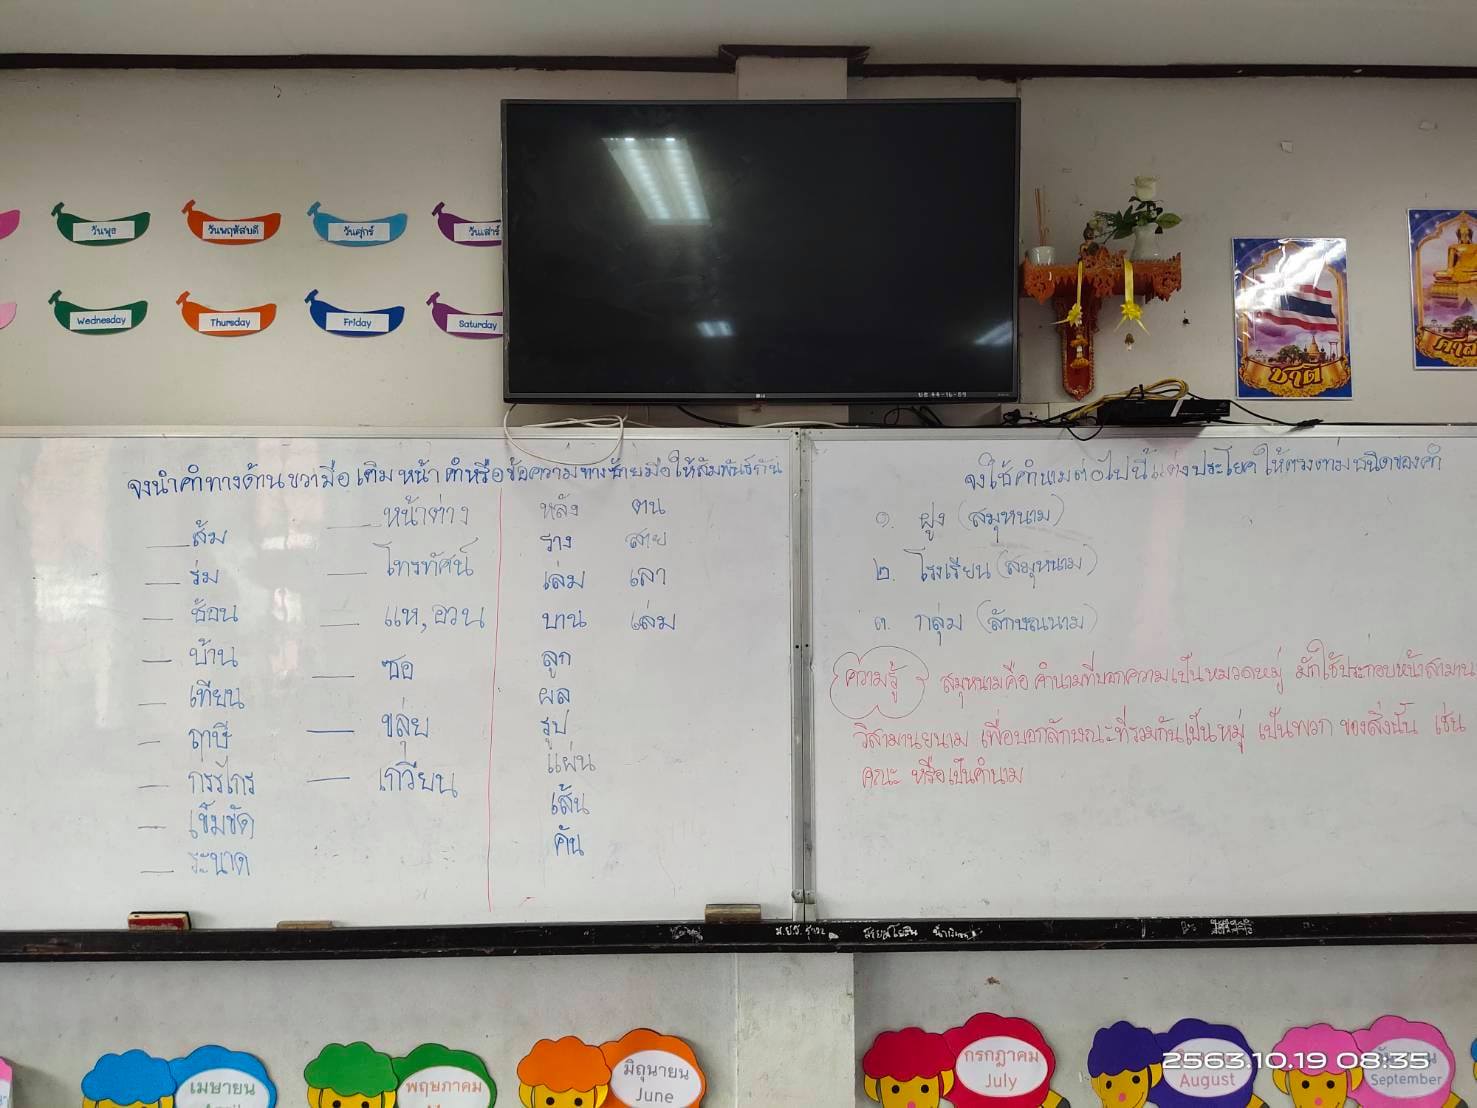 วันพุธ
วันพฤหัสบดี
วันศุกร์
วันเสาร์
Wednesday
Thursday
Friday
Saturday
LG
ชาติ
จงนำคำทางด้านขวามือ เติมหน้า คำหรือข้อความทางซ้ายมือ ให้สัมพันธ์กัน
__ส้ม
__ร่ม
__ช้อน
__บ้าน
__เทียน
__ฤาษี
__กรรไกร
__เข็มขัด
__ระนาด
__หน้าต่าง
__โทรทัศน์
__แห, อวน
__ซอ
__ขลุ่ย
__เกวียน
หลัง ตน
ราง สาย
เล่ม เลา
บาน เล่ม
ลูก
ผล
รูป
แผ่น
เส้น
คัน
จงใช้คำนามต่อไปนี้แต่งประโยค ให้ตรงตามชนิดของคำ
๑. ฝูง (สมุหนาม)
๒. โรงเรียน (สมุหนาม)
๓. กลุ่ม (ลักษณนาม)
ความรู้ สมุหนามคือ คำนามที่บอกความเป็นหมวดหมู่ มักใช้ประกอบหน้าสามาน
วิสามานยนาม เพื่อบอกลักษณะที่รวมกันเป็นหมู่ เป็นพวก ของสิ่งนั้น เช่น
คณะ หรือเป็นคำนาม
เมษายน
พฤษภาคม
มิถุนายน
June
กรกฎาคม
July
August
September
2563.10.19 08:35